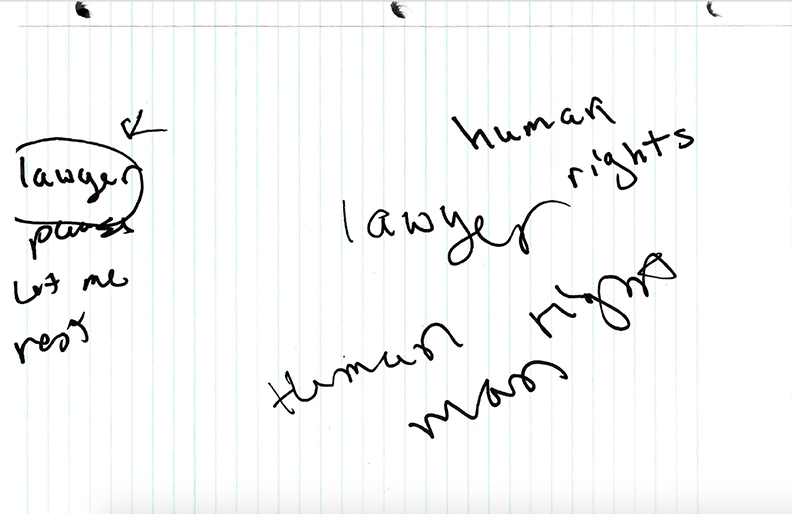 lawyer
let me
rest
human
rights
lawyer
Human rights
man